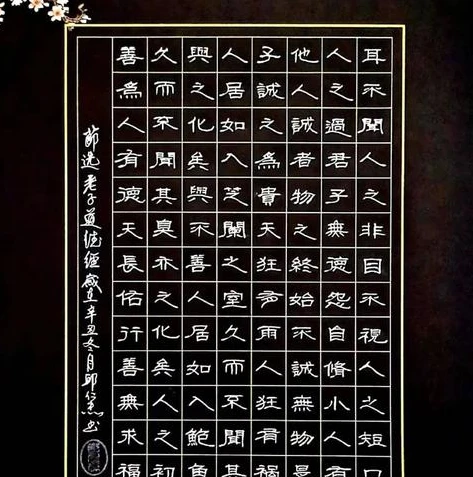 耳不聞人之非目不視人之短口
人之過君子無德怨自脩小人有
他人誠者物之終始不誠無物是
子誠之為貴天狂雨人狂有禍
人居如入芝蘭之室久而不聞其
與之化矣與不善人居如入鮑魚
久而不聞其臭亦之化矣人之初
善為人有德天長佑行善無求福
節选老子道德經歲在辛丑冬月邱书